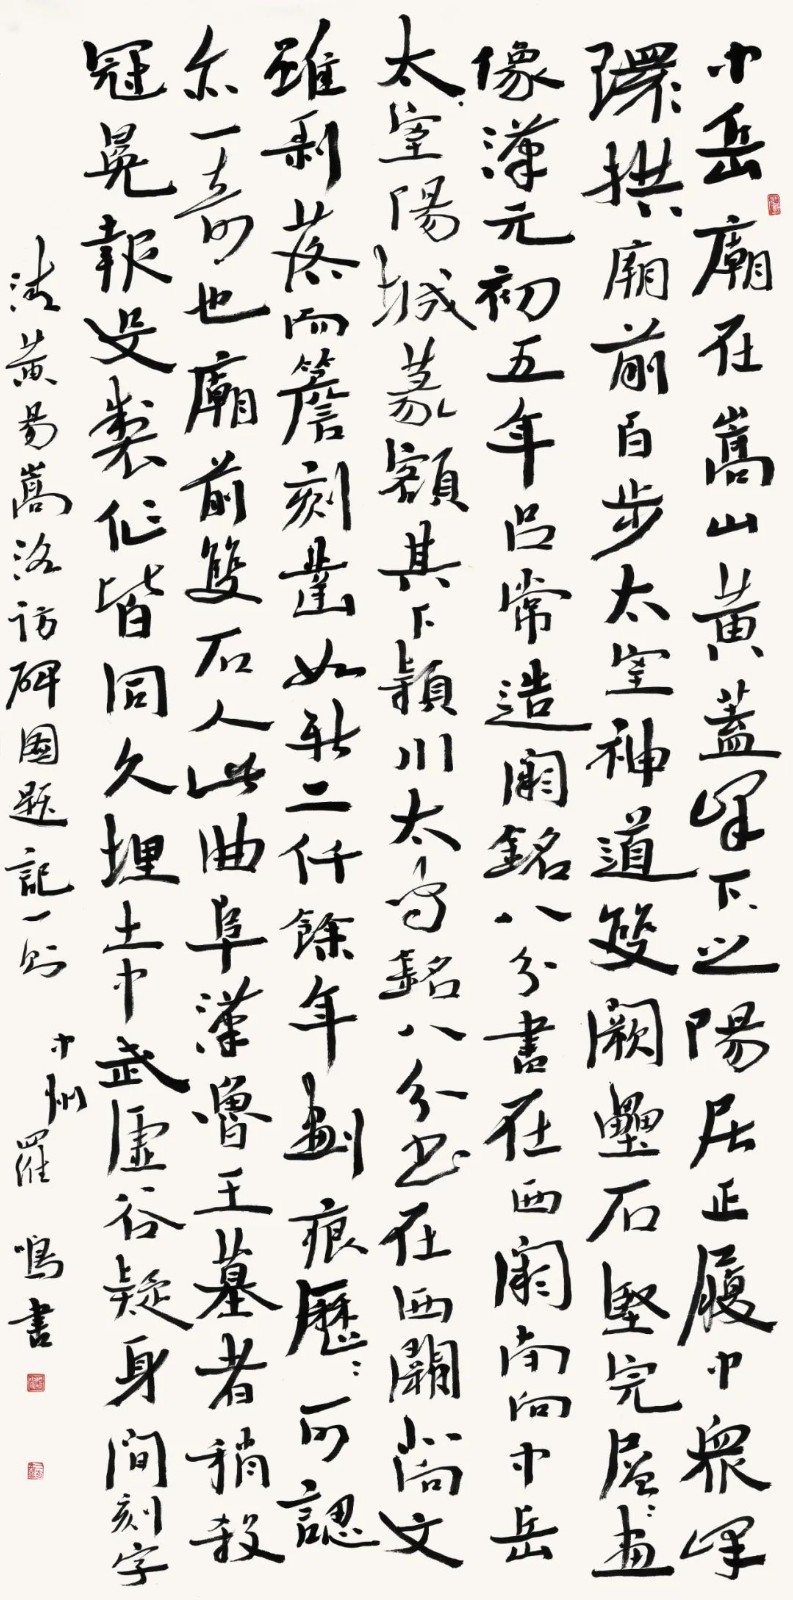 中岳廟在嵩山黃蓋峰下之陽居正履中眾峰
環拱廟前百步太室神道雙闕壘石堅完屋畫
像漢元初五年呂常造闕銘八分書在西闕南向中岳
太室陽城篆額其下潁川太守銘八分書在西闕北尚文
雖剥落而簷刻鑿如新二仟餘年劃痕歷歷可認
亦一奇也廟前雙石人此曲阜漢魯王墓者稍殺
冠冕報殳製作皆同久埋土中武虛谷疑身間刻字
清黃易嵩洛訪碑圖題記一則 中州羅鳴書